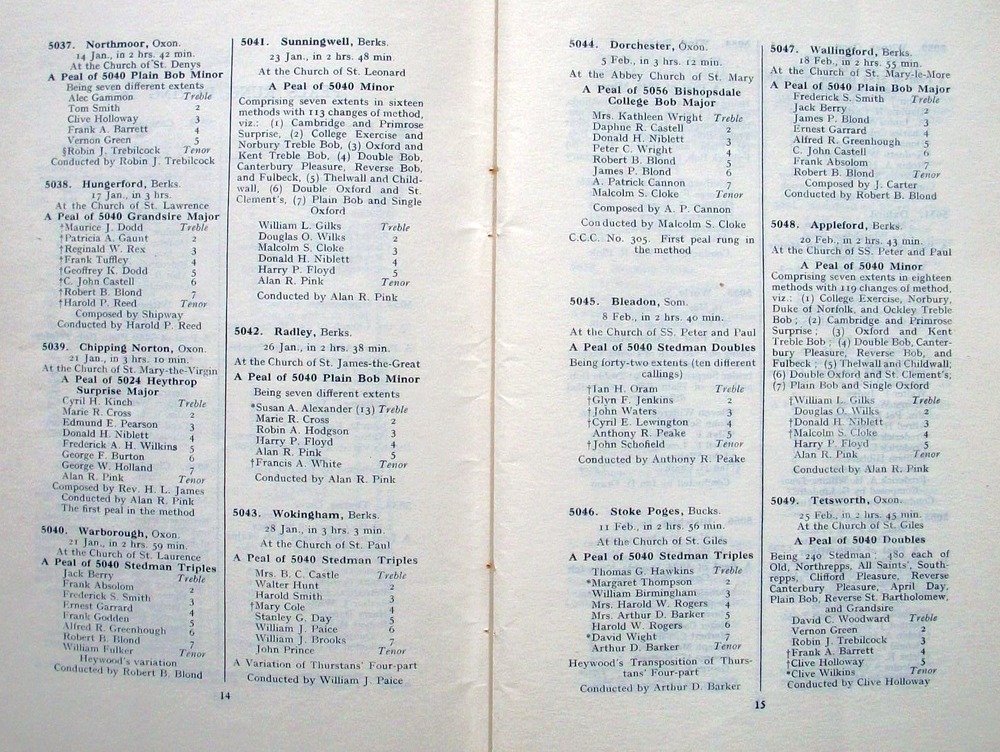 5037. Northmoor, Oxon.
14 Jan., in 2 hrs. 42 min.
At the Church of St. Denys
A Peal of 5040 Plain Bob Minor
Being seven different extents
Alec Gammon Treble
Tom Smith 2
Clive Holloway 3
Frank A. Barrett 4
Vernon Green 5
§Robin J. Trebilcock Tenor
Conducted by Robin J. Trebilcock
5038. Hungerford, Berks.
17 Jan., in 3 hrs.
At the Church of St. Lawrence
A Peal of 5040 Grandsire Major
†Maurice J. Dodd Treble
†Patricia A. Gaunt 2
†Reginald W. Rex 3
†Frank Tuffley 4
†Geoffrey K. Dodd 5
†C. John Castell 6
†Robert B. Blond 7
†Harold P. Reed Tenor
Composed by Shipway
Conducted by Harold P. Reed
5039. Chipping Norton, Oxon.
21 Jan., in 3 hrs. 10 min.
At the Church of St. Mary-the-Virgin
A Peal of 5024 Heythrop
Surprise Major
Cyril H. Kinch Treble
Marie R. Cross 2
Edmund E. Pearson 3
Donald H. Niblett 4
Frederick A. H. Wilkins 5
George F. Burton 6
George W. Holland 7
Alan R. Pink Tenor
Composed by Rev. H. L. James
Conducted by Alan R. Pink
The first peal in the method
5040. Warborough, Oxon.
21 Jan., in 2 hrs. 59 min.
At the Church of St. Laurence
A Peal of 5040 Stedman Triples
Jack Berry Treble
Frank Absolom 2
Frederick S. Smith 3
Ernest Garrard 4
Frank Godden 5
Alfred R. Greenhough 6
Robert B. Blond 7
William Fulker Tenor
Heywood's variation
Conducted by Robert B. Blond
5041. Sunningwell, Berks.
23 Jan., in 2 hrs. 48 min
At the Church of St. Leonard
A Peal of 5040 Minor
Comprising seven extents in sixteen
methods with 113 changes of method,
viz.: (1) Cambridge and Primrose
Surprise, (2) College Exercise and
Norbury Treble Bob, (3) Oxford and
Kent Treble Bob, (4) Double Bob,
Canterbury Pleasure, Reverse Bob,
and Fulbeck, (5) Thelwall and Child-
wall, (6) Double Oxford and St.
Clement's, (7) Plain Bob and Single
Oxford
William L. Gilks Treble
Douglas O. Wilks 2
Malcolm S. Cloke 3
Donald H. Niblett 4
Harry P. Floyd 5
Alan R. Pink Tenor
Conducted by Alan R. Pink
5042. Radley, Berks.
26 Jan., in 2 hrs. 38 min.
At the Church of St. James-the-Great
A Peal of 5040 Plain Bob Minor
Being seven different extents
*Susan A. Alexander (13) Treble
Marie R. Cross 2
Robin A. Hodgson 3
Harry P. Floyd 4
Alan R. Pink 5
†Francis A. White Tenor
Conducted by Alan R. Pink
5043. Wokingham, Berks.
28 Jan., in 3 hrs. 3 min.
At the Church of St. Paul
A Peal of 5040 Stedman Triples
Mrs. B. C. Castle Treble
Walter Hunt 2
Harold Smith 3
†Mary Cole 4
Stanley G. Day 5
William J. Paice 6
William J. Brooks 7
John Prince Tenor
A Variation of Thurstans' Four-part
Conducted by William J. Paice
14
5044. Dorchester, Oxon.
5 Feb., in 3 hrs. 12 min.
At the Abbey Church of St. Mary
A Peal of 5056 Bishopsdale
College Bob Major
Mrs. Kathleen Wright Treble
Daphne R. Castell 2
Donald H. Niblett 3
Peter C. Wright 4
Robert B. Blond 5
James P. Blond 6
A. Patrick Cannon 7
Malcolm S. Cloke Tenor
Composed by A. P. Cannon
Conducted by Malcolm S. Cloke
C.C.C. No. 305. First peal rung in
the method
5045. Bleadon, Som.
8 Feb., in 2 hrs. 40 min.
At the Church of SS. Peter and Paul
A Peal of 5040 Stedman Doubles
Being forty-two extents (ten different
callings)
†Ian H. Oram Treble
†Glyn F. Jenkins 2
†John Waters 3
†Cyril E. Lewington 4
Anthony R. Peake 5
†John Schofield Tenor
Conducted by Anthony R. Peake
5046. Stoke Poges, Bucks.
11 Feb., in 2 hrs. 56 min.
At the Church of St. Giles
A Peal of 5040 Stedman Triples
Thomas G. Hawkins Treble
*Margaret Thompson 2
William Birmingham 3
Mrs. Harold W. Rogers 4
Mrs. Arthur D. Barker 5
Harold W. Rogers 6
*David Wight 7
Arthur D. Barker Tenor
Heywood's Transposition of Thurs-
tans' Four-part
Conducted by Arthur D. Barker
5047. Wallingford, Berks.
18 Feb., in 2 hrs. 55 min.
At the Church of St. Mary-le-More
A Peal of 5040 Plain Bob Major
Frederick S. Smith Treble
Jack Berry 2
James P. Blond 3
Ernest Garrard 4
Alfred R. Greenhough 5
C. John Castell 6
Frank Absolom 7
Robert B. Blond Tenor
Composed by J. Carter
Conducted by Robert B. Blond
5048. Appleford, Berks.
20 Feb., in 2 hrs. 43 min.
At the Church of SS. Peter and Paul
A Peal of 5040 Minor
Comprising seven extents in eighteen
methods with 119 changes of method,
viz.: (1) College Exercise, Norbury,
Duke of Norfolk, and Ockley Treble
Bob; (2) Cambridge and Primrose
Surprise; (3) Oxford and Kent
Treble Bob; (4) Double Bob, Canter-
bury Pleasure, Reverse Bob, and
Fulbeck; (5) Thelwall and Childwall;
(6) Double Oxford and St. Clement's;
(7) Plain Bob and Single Oxford
†William L. Gilks Treble
Douglas O. Wilks 2
†Donald H. Niblett 3
†Malcolm S. Cloke 4
Harry P. Floyd 5
Alan R. Pink Tenor
Conducted by Alan R. Pink
5049. Tetsworth, Oxon.
25 Feb., in 2 hrs. 45 min.
At the Church of St. Giles
A Peal of 5040 Doubles
Being 240 Stedman; 480 each of
Old, Northrepps, All Saints', South-
repps, Clifford Pleasure, Reverse
Canterbury Pleasure, April Day,
Plain Bob, Reverse St. Bartholomew,
and Grandsire
David C. Woodward Treble
Vernon Green 2
Robin J. Trebilcock 3
†Frank A. Barrett 4
†Clive Holloway 5
*Clive Wilkins Tenor
Conducted by Clive Holloway
15